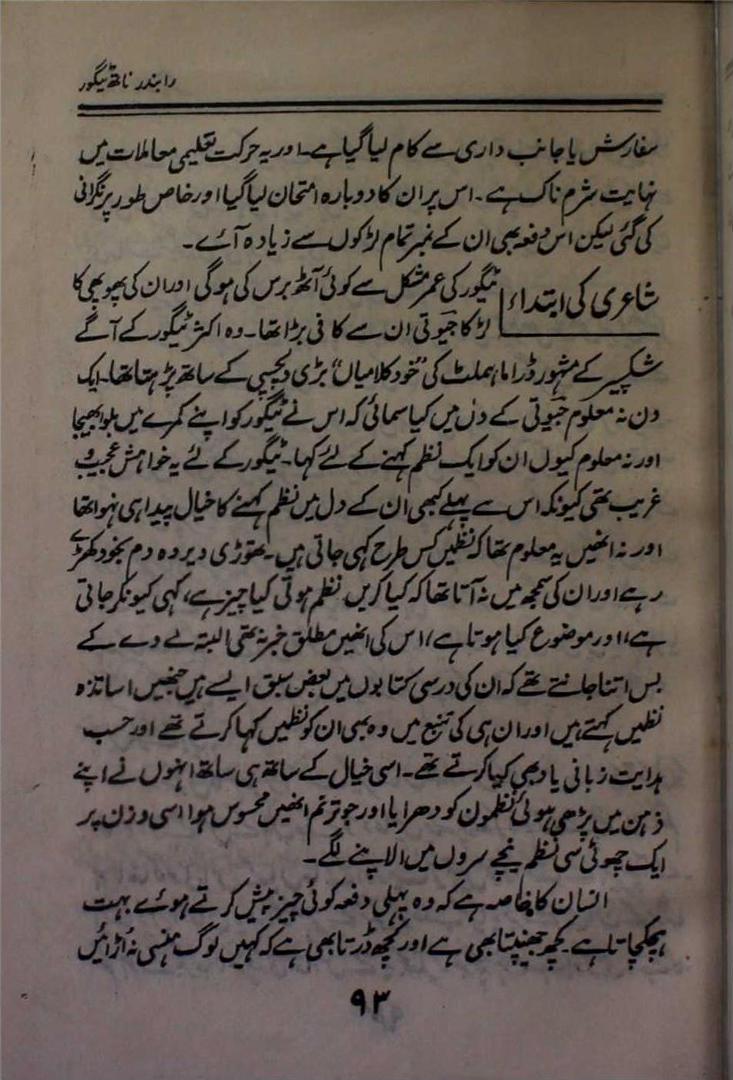 رابندر ناتھ ٹیگور
سفارش یا جانب داری سے کام لیا گیا ہے۔ اور یہ حرکت تعلیمی معاملات میں
نہایت شرم ناک ہے۔ اس پر ان کا دوبارہ امتحان لیا گیا اور خاص طور پر نگرانی
کی گئی لیکن اس دفعہ بھی ان کے نمبر تمام لڑکوں سے زیادہ آئے۔
شاعری کی ابتداء
ٹیگور کی عمر مشکل سے کوئی آٹھ برس کی ہوگی اور ان کی پھوپھی کا
لڑکا جیوتی ان سے کافی بڑا تھا۔ وہ اکثر ٹیگور کے آگے
شکسپیر کے مشہور ڈراما ہملٹ کی "خود کلامیاں" بڑی دلچسپی کے ساتھ پڑہتا تھا۔ ایک
دن نہ معلوم جیوتی کے دل میں کیا سمائی کہ اس نے ٹیگور کو اپنے کمرے میں بلوا بھیجا
اور نہ معلوم کیوں ان کو ایک نظم کہنے کے لئے کہا۔ ٹیگور کے لئے یہ خواہش عجیب و
غریب تھی کیونکہ اس سے پہلے کبھی ان کے دل میں نظم کہنے کا خیال پیدا ہی نہوا تھا
اور نہ انھیں یہ معلوم تھا کہ نظمیں کس طرح کہی جاتی ہیں۔ تھوڑی دیر وہ دم بخود کھڑے
رہے اور ان کی سمجھ میں نہ آتا تھا کہ کیا کریں نظم ہوتی کیا چیز ہے، کہی کیونکر جاتی
ہے، اور موضوع کیا ہوتا ہے، اس کی انھیں مطلق خبر نہ تھی البتہ لے دے کے
بس اتنا جانتے تھے کہ ان کی درسی کتابوں میں بعض سبق ایسے ہیں جنھیں اساتذہ
نظمیں کہتے ہیں اور ان ہی کی تتبع میں وہ بھی ان کو نظمیں کہا کرتے تھے اور حسب
ہدایت زبانی یاد بھی کیا کرتے تھے۔ اسی خیال کے ساتھ ہی ساتھ انہوں نے اپنے
ذہن میں پڑھی ہوئی نظموں کو دھرایا اور جو ترنم انھیں محسوس ہوا اسی وزن پر
ایک چھوٹی سی نظم نیچے سروں میں الاپنے لگے۔
انسان کا خاصہ ہے کہ وہ پہلی دفعہ کوئی چیز پیش کرتے ہوئے بہت
ہچکچاتا ہے۔ کچھ جھینپتا بھی ہے اور کچھ ڈرتا بھی ہے کہ کہیں لوگ ہنسی نہ اڑائیں
۹۳